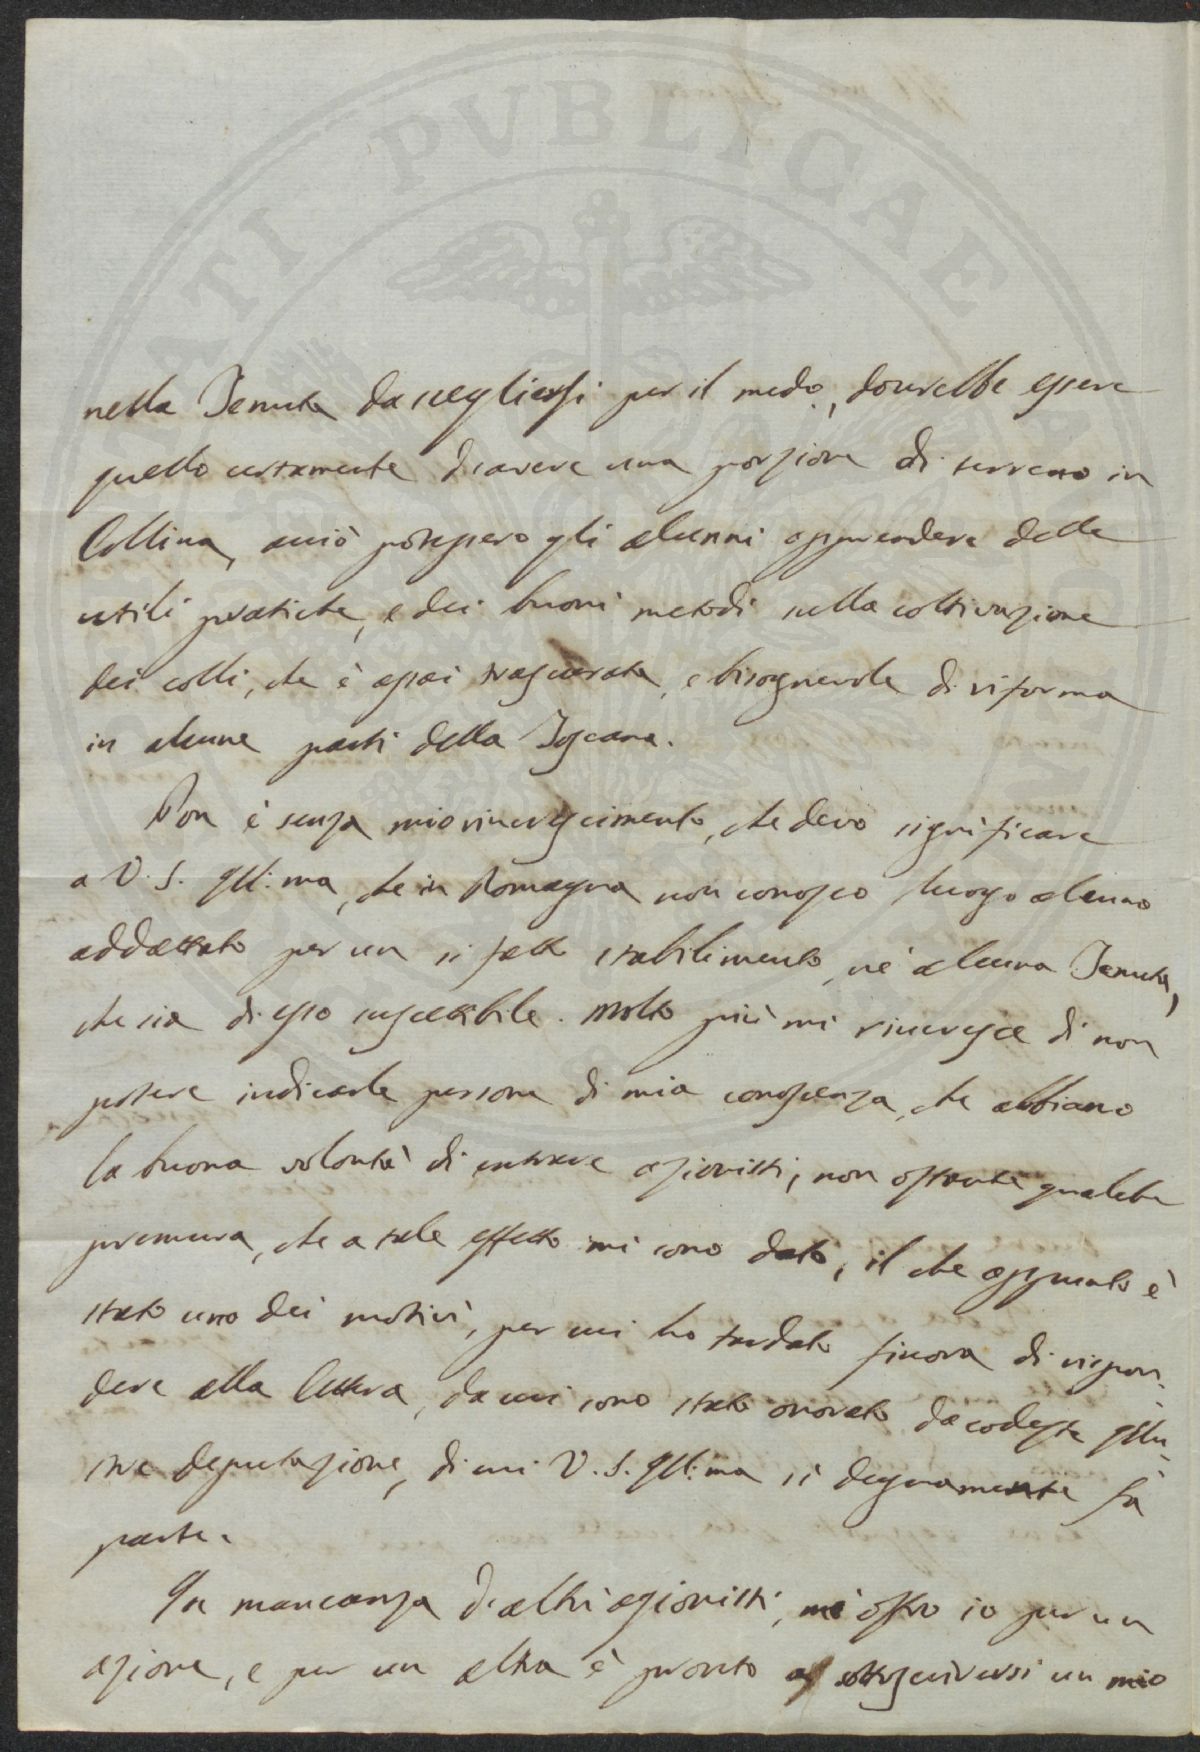 PVBLICAE
nella Tenuta da scegliersi per il medo, dovrebbe essere
quello certamente di avere una porzione di terreno in
Collina, acciò potessero gli alunni apprendere delle
utili pratiche, e dei buoni metodi nella coltivazione
dei colli, che è assai trascurata, e bisognevole di riforma
in alcune parti della Toscana.
Non è senza mio rincrescimento, che devo significare
a V. S. Ill:ma, che in Romagna non conosco luogo alcuno
addattato per un sì fatto stabilimento, nè alcuna Tenuta,
che sia di esso suscettibile. Molto più mi rincresce di non
potere indicarle persone di mia conoscenza, che abbiano
la buona volontà di entrare azionisti, non ostante qualche
premura, che a tale effetto mi sono dato, il che appunto è
stato uno dei motivi, per cui ho tardato finora di rispon-
dere alla lettera, da cui sono stato onorato da codesta Illu-
stre deputazione, di cui V. S. Ill:ma sì degnamente fà
parte.
In mancanza di altri azionisti, mi offro io per un
azione, e per un altra è pronto a sottoscriversi un mio